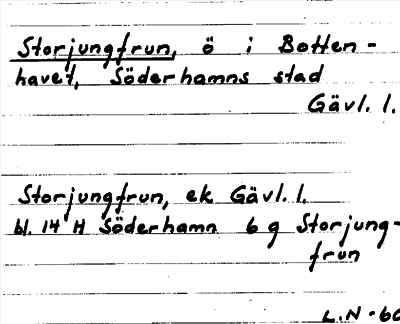 Storjungfrun, ö i Botten-
havet, Söderhamns stad
Gävl. l.
Storjungfrun, ek Gävl. l.
bl. 14 H Söderhamn 6 g Storjung-
frun
L.N-60